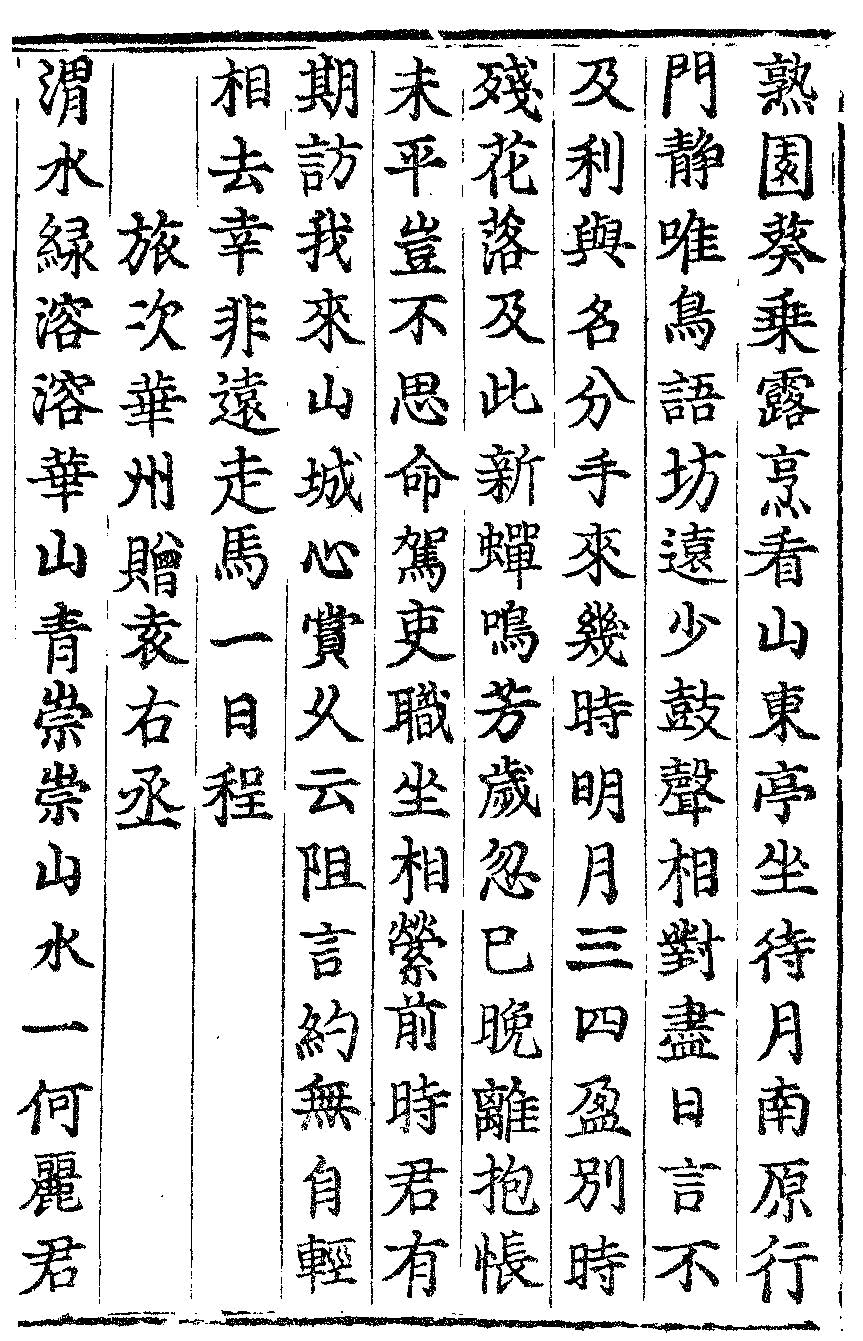 熟園葵乗露烹看山東亭坐待月南原行
門静唯鳥語坊遠少鼓聲相對盡日言不
及利與名分手來幾時明月三四盈別時
殘花落及此新蟬鳴芳歲忽已晚離抱悵
未平豈不思命駕吏職坐相縈前時君有
期訪我來山城心賞久云阻言約無自輕
相去幸非遠走馬一日程
旅次華州贈袁右丞
渭水緑溶溶華山青崇崇山水一何麗君